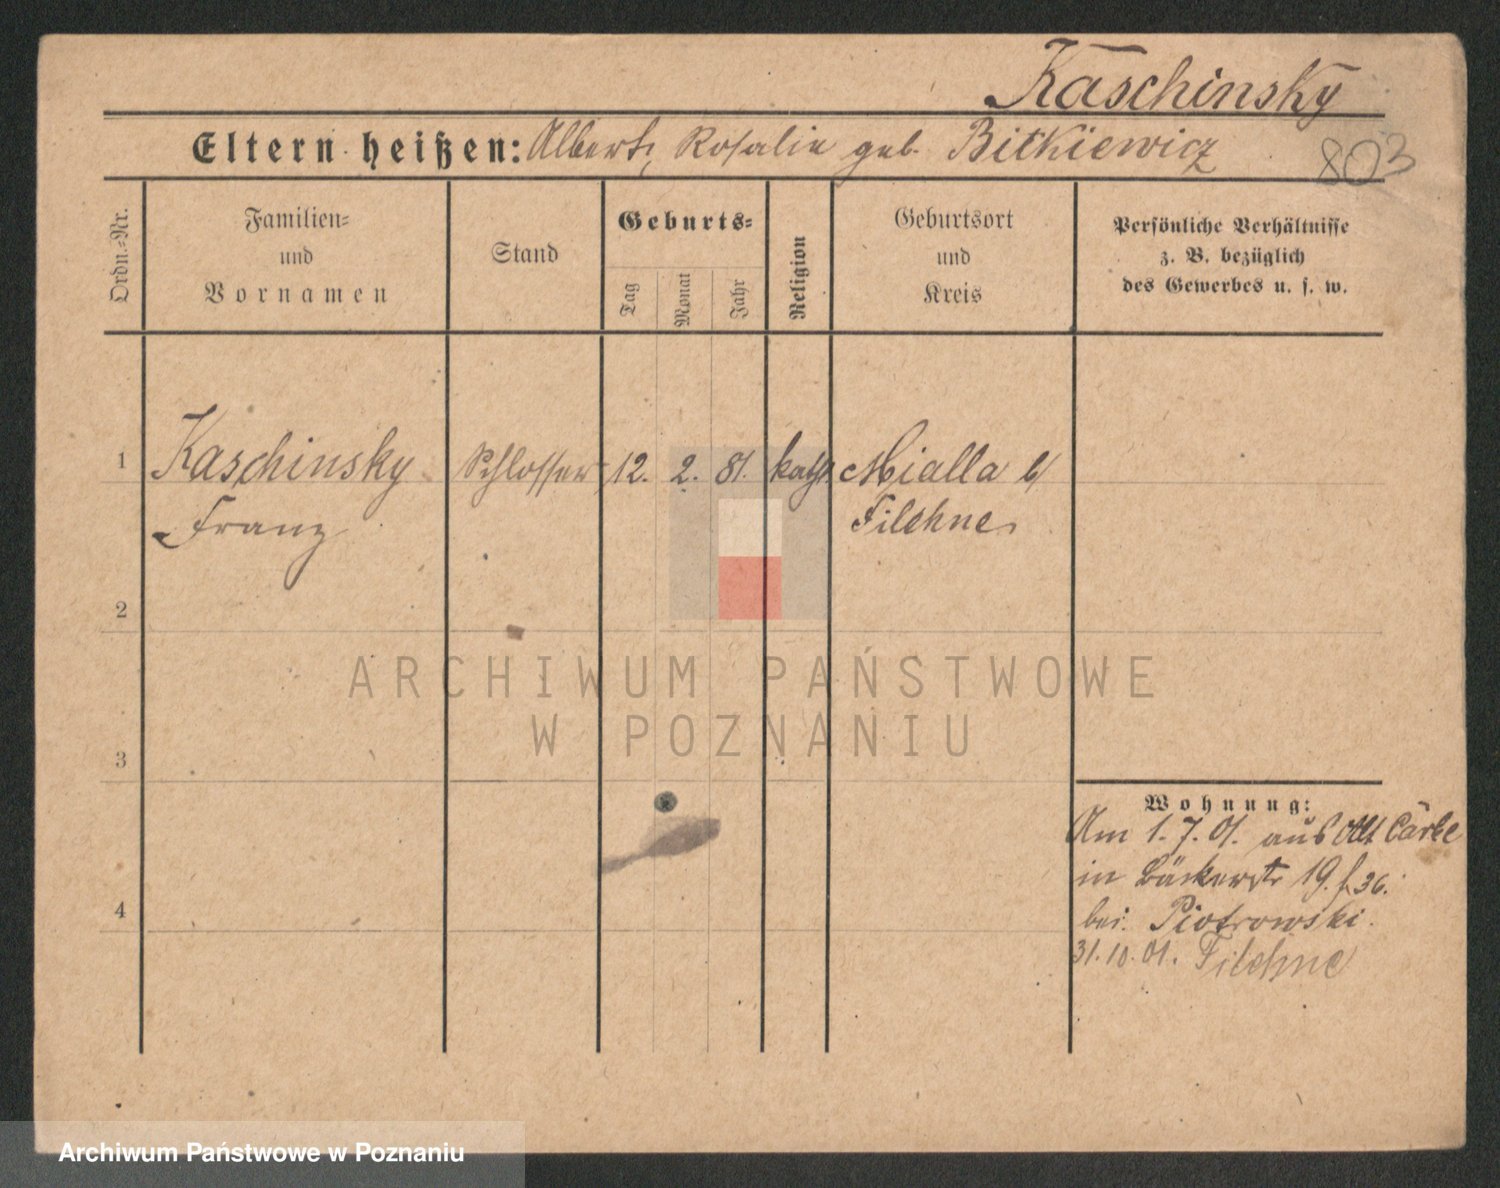 Kaschinsky
Eltern heißen: Albert, Rosalie geb. Bitkiewicz
803
Ordn.-Nr.
Familien-
und
Vornamen
Stand
Geburts-
Tag
Monat
Jahr
Religion
Geburtsort
und
Kreis
Persönliche Verhältnisse
z. B. bezüglich
des Gewerbes u. s. w.
1 Kaschinsky Schlosser 12. 2. 81. kath. Mialla b/
Franz Filehne
2
3
4
Wohnung:
Am 1. 7. 01. aus Alt
in Bäckerstr 19. 36.
bei Piotrowski.
31.10.01. Filehne
ARCHIWUM PAŃSTWOWE
W POZNANIU
Archiwum Państwowe w Poznaniu